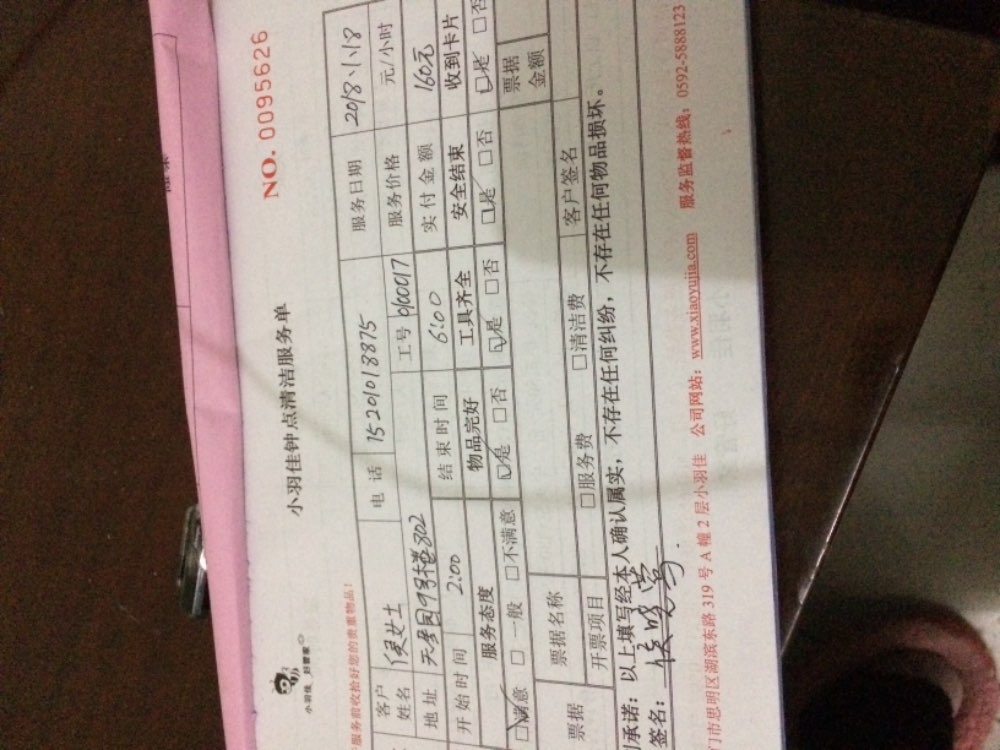 小羽佳 好管家
小羽佳钟点清洁服务单
NO. 0095626
服务前收拾好您的贵重物品!
客户姓名 侯女士 电话 15201018875 服务日期 2018.1.18
地址 9号楼802 工号 服务价格 元/小时
开始时间 2:00 结束时间 6:00 实付金额 160元
服务态度 物品完好 工具齐全 安全结束 收到卡片
☑满意 □一般 □不满意 ☑是 □否 ☑是 □否 ☑是 □否 ☑是 □否
票据 票据名称 票据金额
开票项目 □服务费 □清洁费 客户签名
承诺:以上填写经本人确认属实,不存在任何纠纷,不存在任何物品损坏。
签名:
门市思明区湖滨东路 319 号 A 幢 2 层小羽佳 公司网站:www.xiaoyujia.com 服务监督热线:0592-5888123